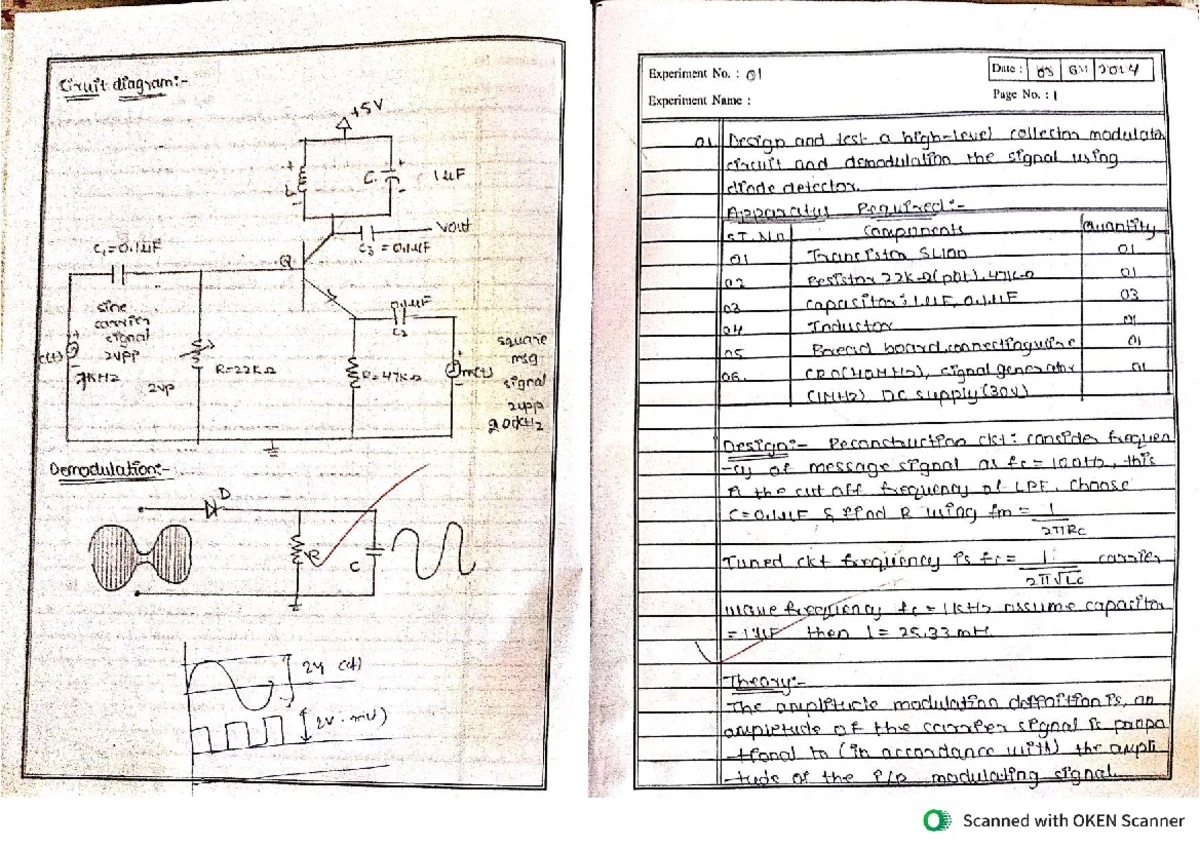 Circuit diagram:-
+5V
+
L
-
C
+
-
1µF
Vout
C3 = 0.1µF
C1=0.1µF
Q
0.1µF
C2
sine
carrier
signal
2Vpp
c(t)
+
-
7KHz
2Vp
R=22KΩ
R=47KΩ
+
m(t)
-
square
msg
signal
2Vpp
200Hz
Demodulation:-
D
R
C
2V c(t)
2V m(t)
Experiment No. : 01
Date : 03 2024
Experiment Name :
Page No. : 1
01 Design and test a high-level collector modulator
circuit and demodulation the signal using
diode detector.
Apparatus Required:-
Sr.No Components Quantity
01 Transistor SL100 01
02 Resistor 22KΩ(pot), 47KΩ 01
03 capacitor: 1µF, 0.1µF 03
04 Inductor 01
05 Bread board, connecting wire 01
06. CRO(40MHz), signal generator 01
(1MHz) DC supply (30V)
Design:- Reconstruction ckt: consider frequen
-cy of message signal as fc = 100Hz, this
is the cut off frequency of LPF. Choose
C=0.1µF & find R using fm = 1
2πRc
Tuned ckt frequency is fc = 1 carrier
2π√Lc
wave frequency fc = 1KHz assume capacitor
= 1µF then l = 25.33mH
Theory:-
The amplitude modulation definition is, an
amplitude of the carrier signal is propo
-tional to (in accordance with) the ampli
-tude of the i/p modulating signal.
Scanned with OKEN Scanner